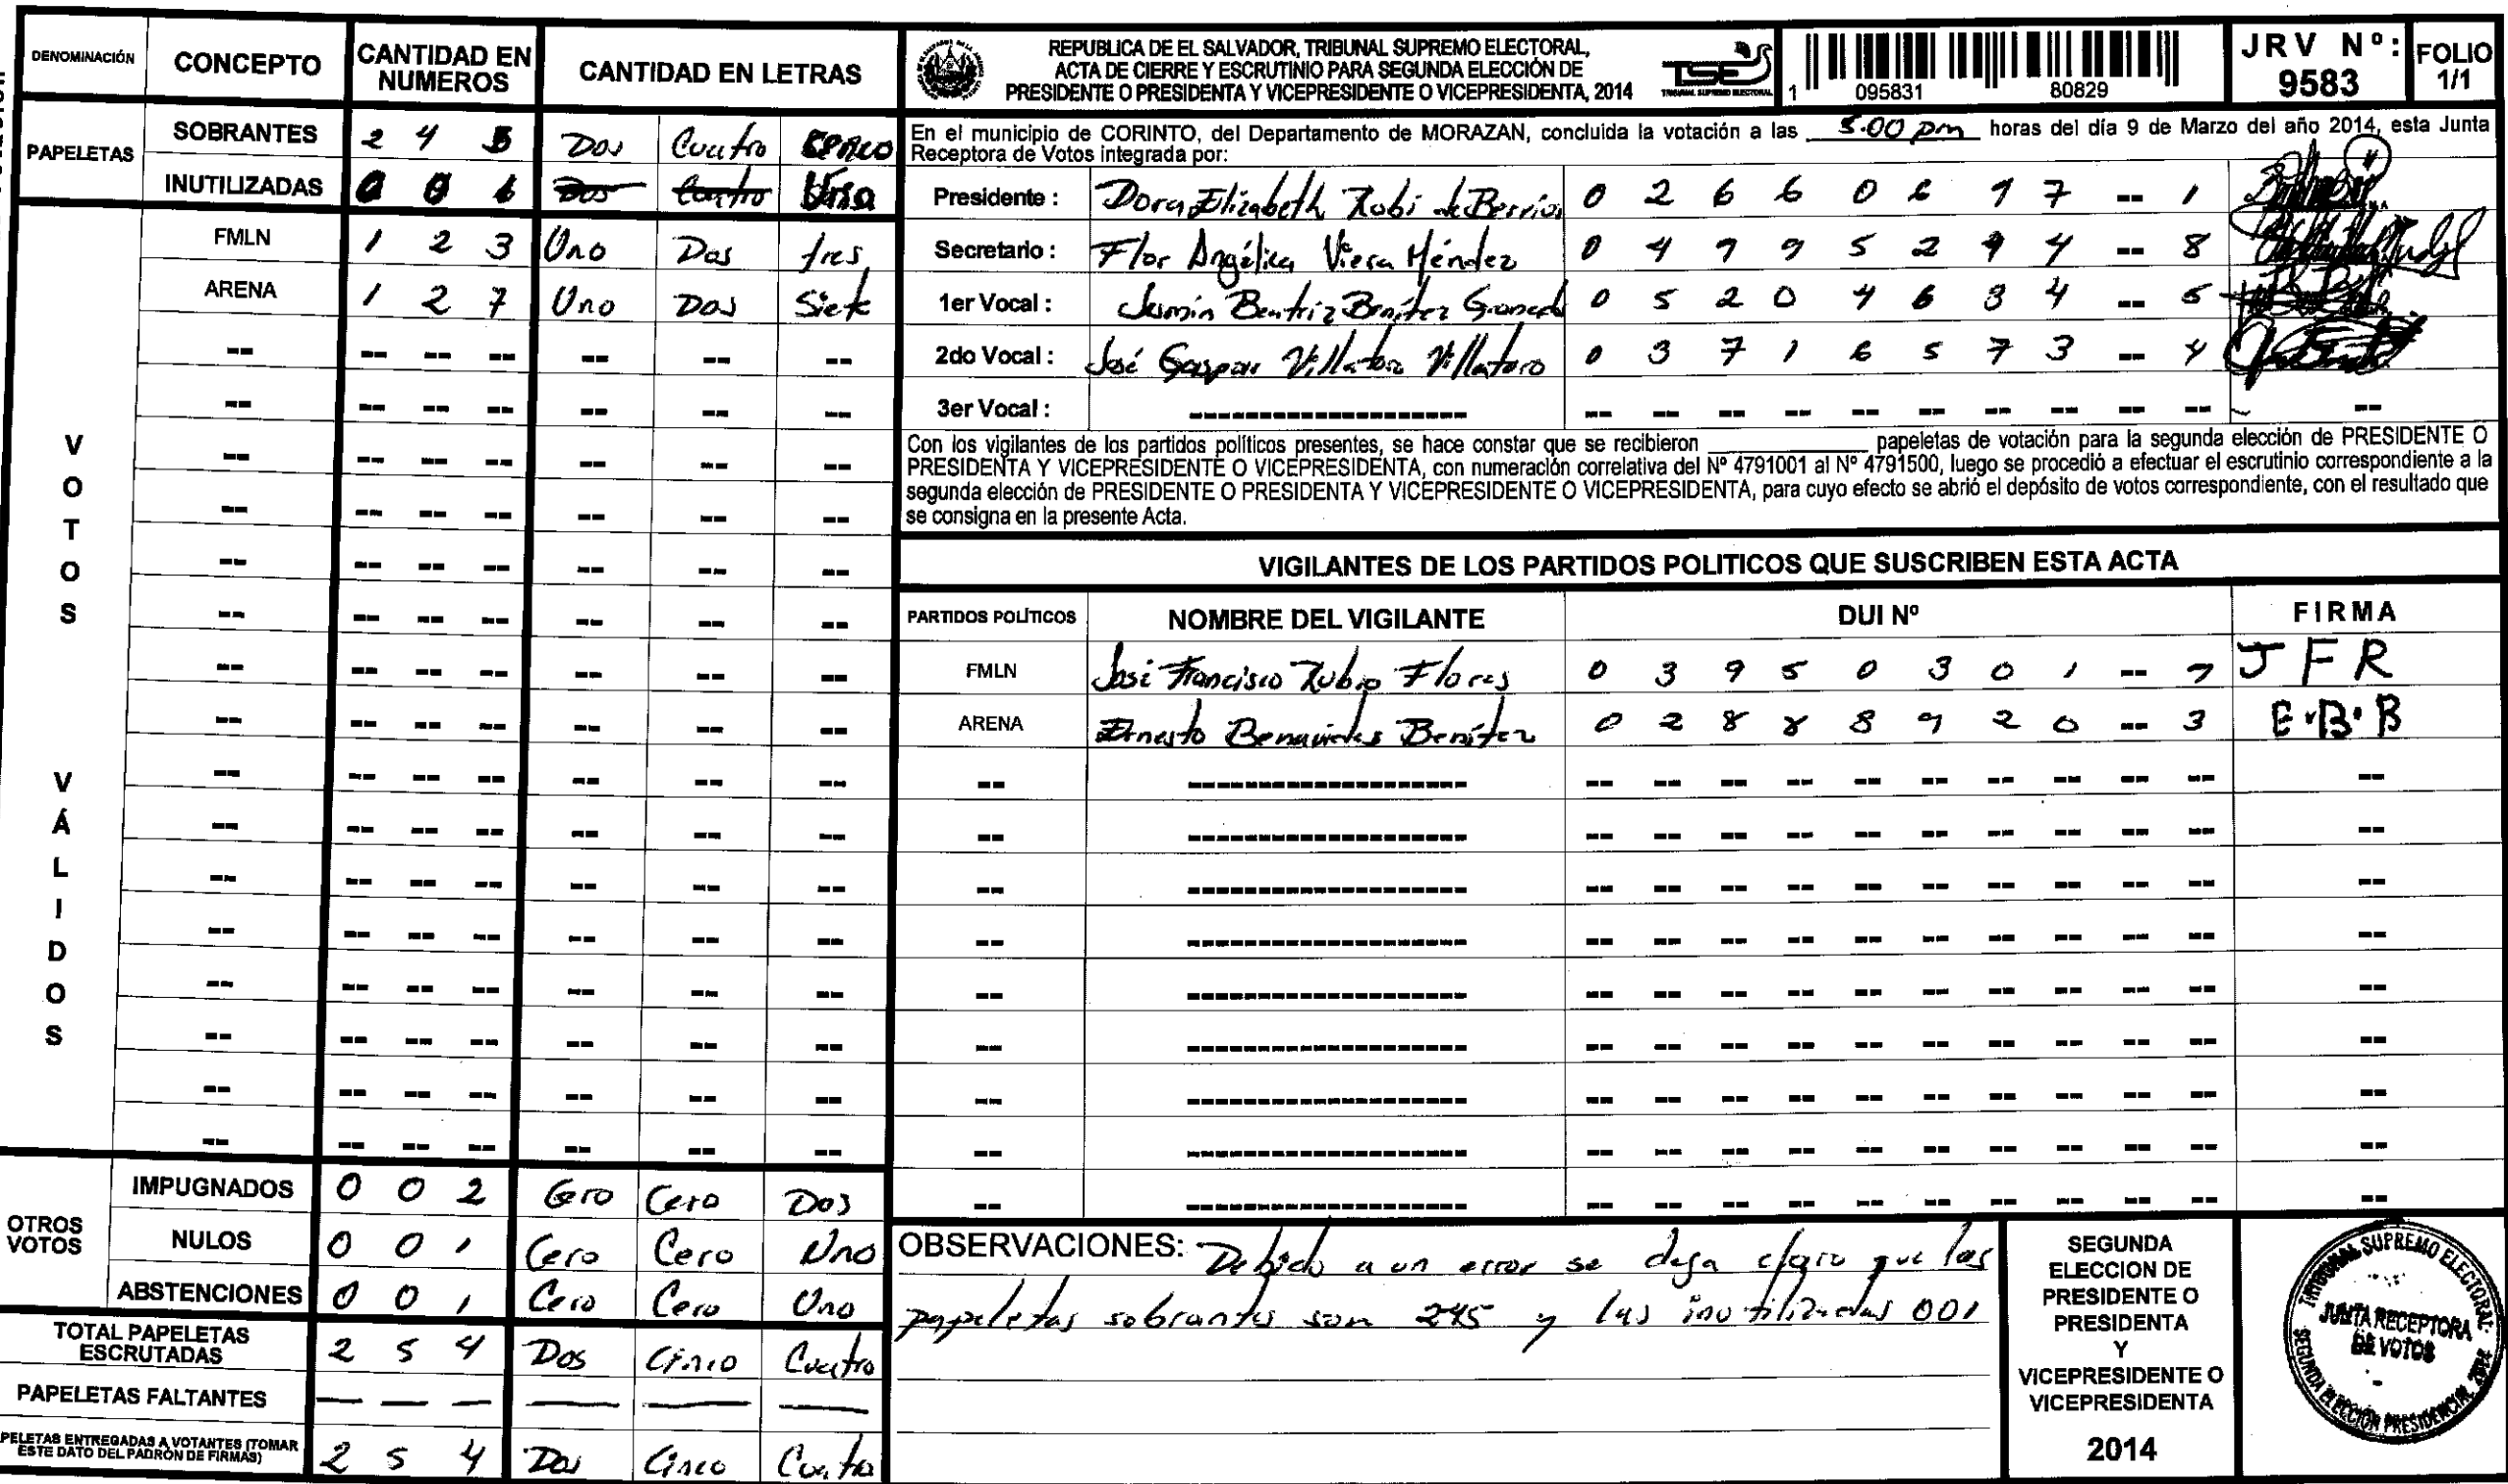 DENOMINACIÓN CONCEPTO CANTIDAD EN NUMEROS CANTIDAD EN LETRAS
PAPELETAS
SOBRANTES 2 4 5 Dos Cuatro Cinco
INUTILIZADAS 0 0 1 Dos Cuatro Uno
VOTOS VÁLIDOS
FMLN 1 2 3 Uno Dos tres
ARENA 1 2 7 Uno Dos Siete
OTROS VOTOS
IMPUGNADOS 0 0 2 Cero Cero Dos
NULOS 0 0 1 Cero Cero Uno
ABSTENCIONES 0 0 1 Cero Cero Uno
TOTAL PAPELETAS ESCRUTADAS 2 5 4 Dos Cinco Cuatro
PAPELETAS FALTANTES — — — — — —
PELETAS ENTREGADAS A VOTANTES (TOMAR ESTE DATO DEL PADRÓN DE FIRMAS) 2 5 4 Dos Cinco Cuatro
REPUBLICA DE EL SALVADOR, TRIBUNAL SUPREMO ELECTORAL,
ACTA DE CIERRE Y ESCRUTINIO PARA SEGUNDA ELECCIÓN DE
PRESIDENTE O PRESIDENTA Y VICEPRESIDENTE O VICEPRESIDENTA, 2014
TSE
TRIBUNAL SUPREMO ELECTORAL
1 095831 80829
JRV Nº: 9583
FOLIO 1/1
En el municipio de CORINTO, del Departamento de MORAZAN, concluida la votación a las 5:00 pm horas del día 9 de Marzo del año 2014, esta Junta
Receptora de Votos integrada por:
Presidente : Dora Elizabeth Rubi de Berrios 0 2 6 6 0 6 9 7 -- 1
Secretario : Flor Angélica Viera Méndez 0 4 9 9 5 2 9 4 -- 8
1er Vocal : Beatriz Benítez 0 5 2 0 4 6 3 4 -- 5
2do Vocal : José Gaspar Villatoro Villatoro 0 3 7 1 6 5 7 3 -- 4
3er Vocal : --
Con los vigilantes de los partidos políticos presentes, se hace constar que se recibieron ____ papeletas de votación para la segunda elección de PRESIDENTE O
PRESIDENTA Y VICEPRESIDENTE O VICEPRESIDENTA, con numeración correlativa del Nº 4791001 al Nº 4791500, luego se procedió a efectuar el escrutinio correspondiente a la
segunda elección de PRESIDENTE O PRESIDENTA Y VICEPRESIDENTE O VICEPRESIDENTA, para cuyo efecto se abrió el depósito de votos correspondiente, con el resultado que
se consigna en la presente Acta.
VIGILANTES DE LOS PARTIDOS POLITICOS QUE SUSCRIBEN ESTA ACTA
PARTIDOS POLÍTICOS NOMBRE DEL VIGILANTE DUI Nº FIRMA
FMLN José Francisco Rubio Flores 0 3 9 5 0 3 0 1 -- 7 J F R
ARENA Ernesto Benavides Benítez 0 2 8 8 8 9 2 0 -- 3 E.B.B
OBSERVACIONES: Debido a un error se deja claro que las
papeletas sobrantes son 245 y las inutilizadas 001
SEGUNDA
ELECCION DE
PRESIDENTE O
PRESIDENTA
Y
VICEPRESIDENTE O
VICEPRESIDENTA
2014
TRIBUNAL SUPREMO ELECTORAL
JUNTA RECEPTORA
DE VOTOS
SEGUNDA ELECCIÓN PRESIDENCIAL 2014